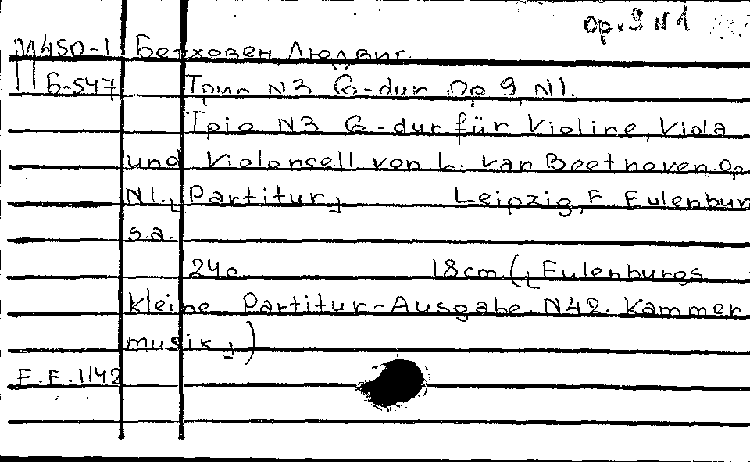 Op. 9 N1
М450-1 Бетховен, Людвиг.
Б-547 Трио N3 G-dur Op 9, N1.
Trio N3 G-dur für Violine, Viola
und Violoncell von L. van Beethoven Op
N1. [Partitur] Leipzig, E. Eulenbur
s.a.
24c. 18cm ([Eulenburgs
kleine Partitur-Ausgabe. N42. Kammer
musik])
E.E. 1142